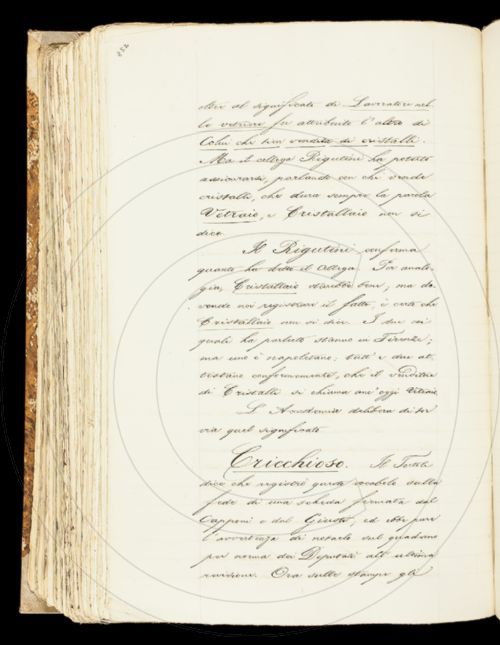 oltre al significato di Lavoratore nel-
le vetriere fu attribuito l'altro di
Colui che tien vendita di cristalli.
Ma il collega Rigutini ha potuto
assicurarsi, parlando con chi vende
cristalli, che dura sempre la parola
Vetraio, e Cristallaio non si
dice.
Il Rigutini conferma
quanto ha detto il Collega. Per analo-
gia, Cristallaio starebbe bene, ma do-
vendo noi registrare il fatto, è certo che
Cristallaio non si dice. I due coi
quali ha parlato stanno in Firenze;
ma uno è napoletano; tutti e due at-
testano conformemente, che il venditore
di Cristalli si chiama anc'oggi Vetraio.
L'Accademia delibera di to
via quel significato.
Cricchioso. Il Tortoli
dice che registrò questo vocabolo sulla
fede di una scheda firmata dal
Capponi e dal Giusti, ed ebbe pure
l'avvertenza di notarlo sul quaderno
per norma dei Deputati all'ultima
revisione. Ora sulle stampe gli